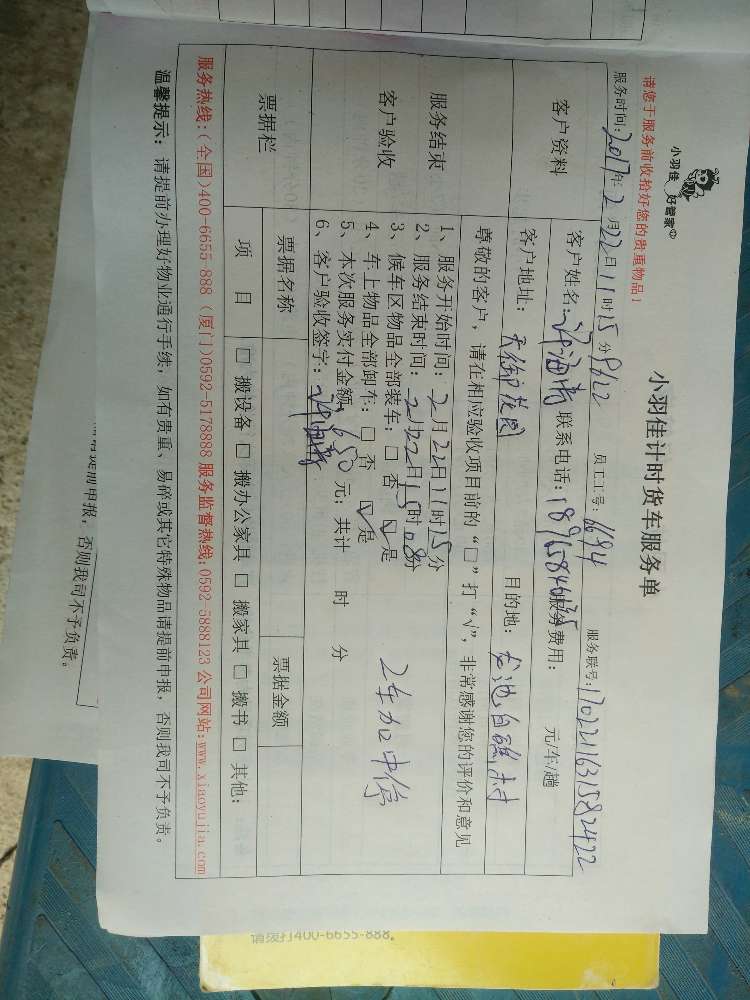 小羽佳 好管家
小羽佳计时货车服务单
请您于服务前收拾好您的贵重物品!
服务时间: 2017年 2月22日11时15分 员工工号: 服务联号: 170221163158 2422
客户资料
客户姓名: 联系电话: 服务费用: 元/车/趟
客户地址: 天御花园 目的地:
服务结束
客户验收
尊敬的客户, 请在相应验收项目前的“□”打“√”, 非常感谢您的评价和意见
1、服务开始时间: 2月22日11时15分
2、服务结束时间: 2月22日15时08分
3、候车区物品全部装车: □ 否 ☑ 是
4、车上物品全部卸车: □ 否 ☑ 是
5、本次服务实付金额: 650 元; 共计 时 分
2车加中停
6、客户验收签字:
票据栏
票据名称 票据金额
项 目 □ 搬设备 □ 搬办公家具 □ 搬家具 □ 搬书 □ 其他:
服务热线:(全国)400-6655-888 (厦门)0592-5178888 服务监督热线:0592-5888123 公司网站:www.xiaoyujia.com
温馨提示: 请提前办理好物业通行手续, 如有贵重、易碎或其它特殊物品请提前申报, 否则我司不予负责。
请提前申报, 否则我司不予负责。
请拨打400-6655-888。